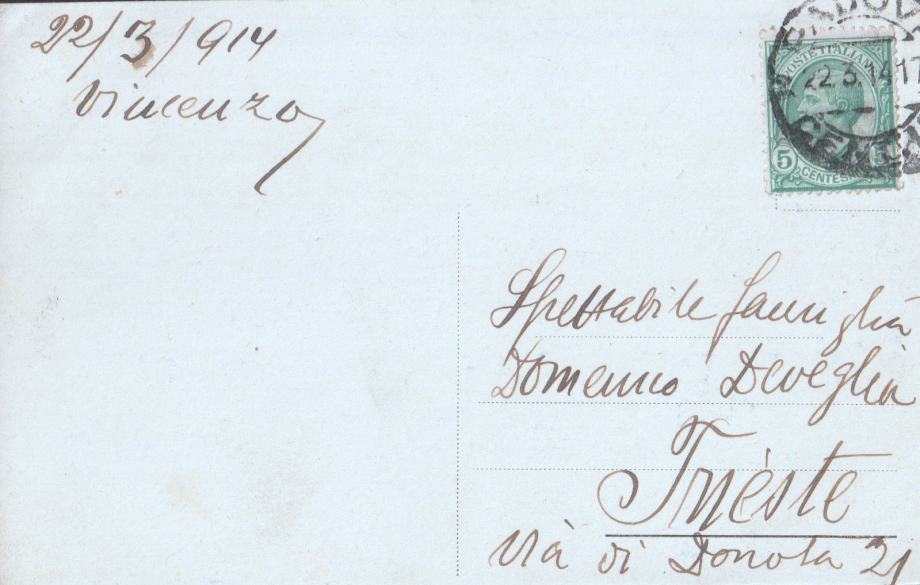 22/3/914
Vincenzo
POSTE ITALIANE
22.3.14 17
5
CENTESIMI
Spettabile famiglia
Domenico Deveglia
Trieste
Via di Donota 21